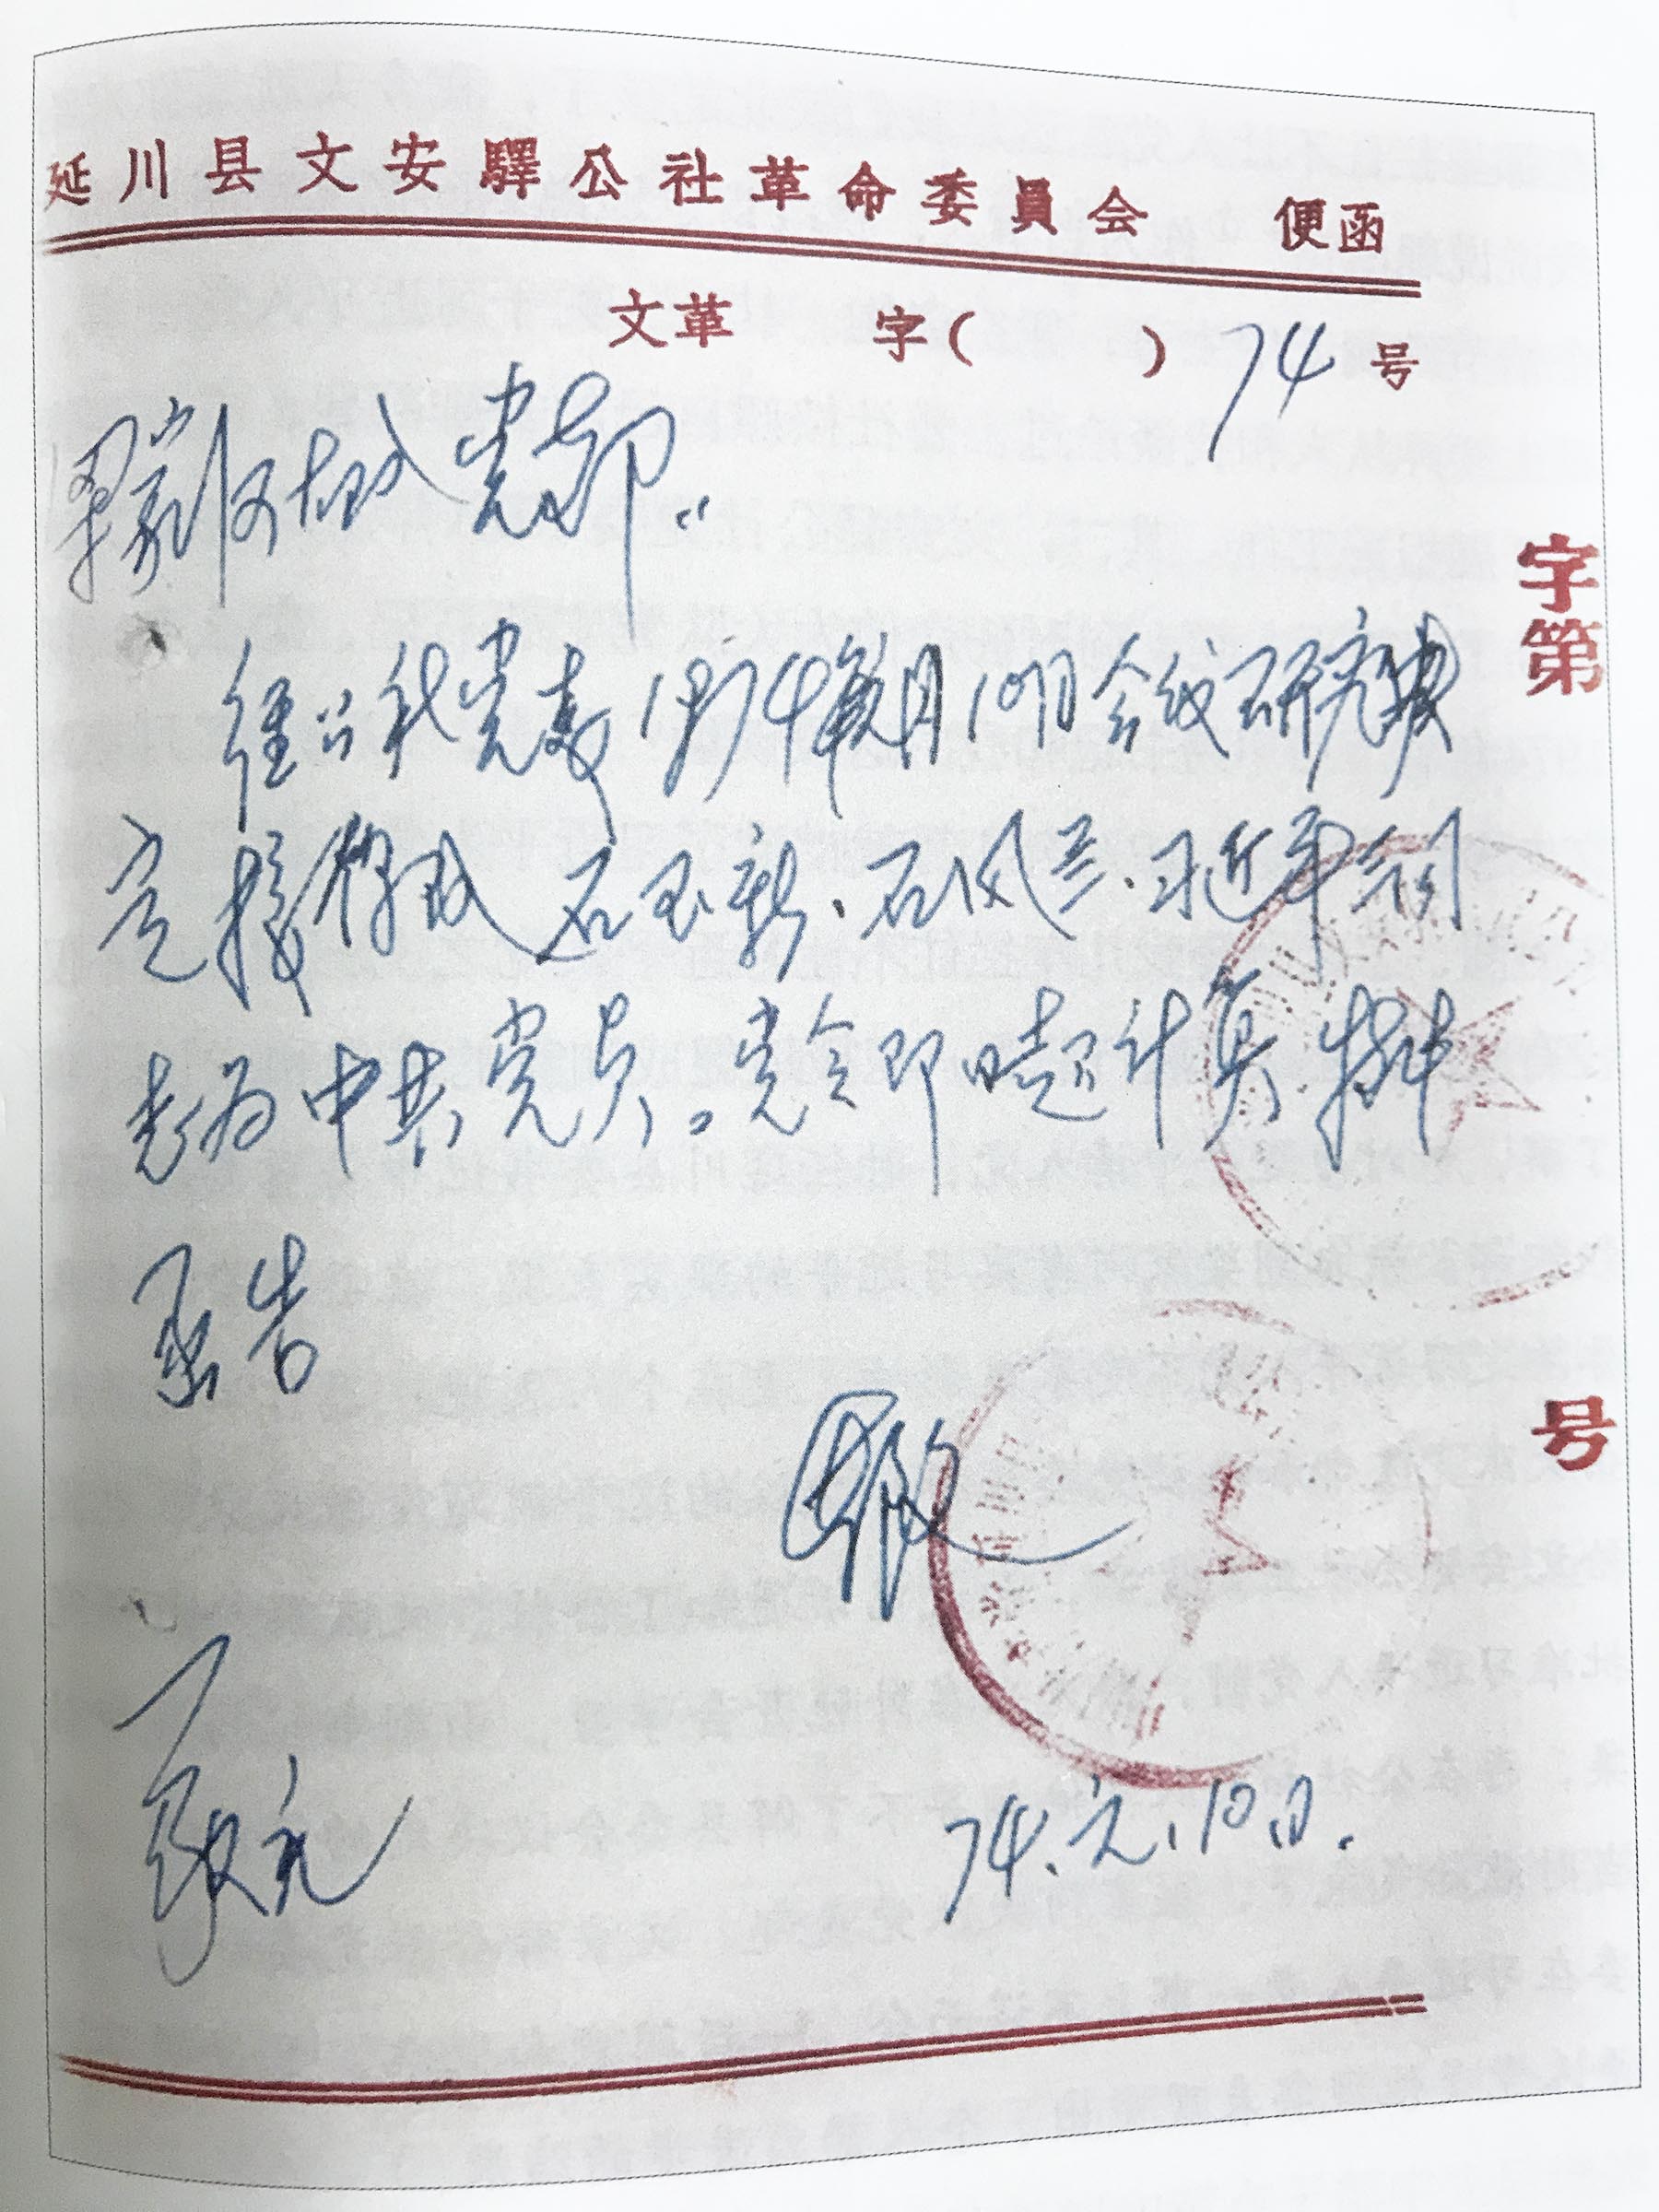 延川县文安驛公社革命委員会 便函
文革 字( ) 74 号
梁家河大队党支部:
经公社党委1974年元月10日会议研究决
定接收 石玉新、石风兰、习近平三同
志为中共党员。党令即日起计算 特此
函告
此致
敬礼
74.元.10日.
字第
号